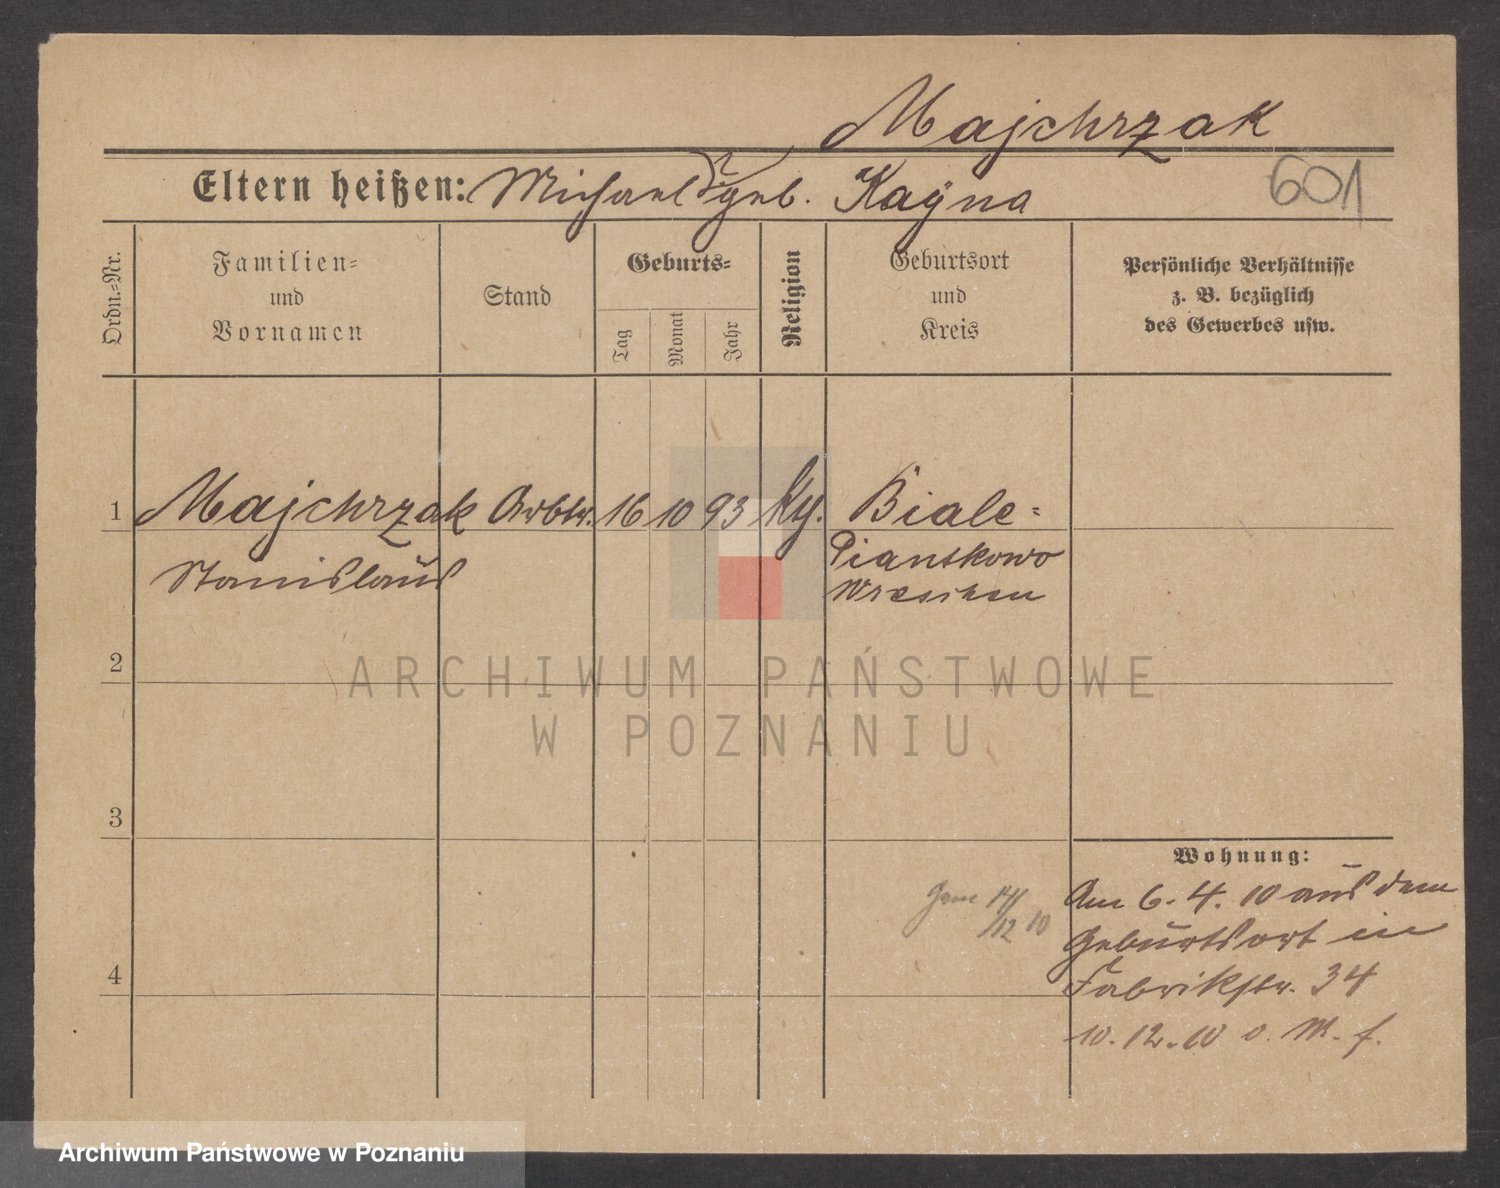 Majchrzak
Eltern heißen: Michael geb. Kaÿna
601
Ordn.-Nr.
Familien-
und
Vornamen
Stand
Geburts-
Tag
Monat
Jahr
Religion
Geburtsort
und
Kreis
Persönliche Verhältnisse
z. B. bezüglich
des Gewerbes usw.
1 Majchrzak Arbtr. 16 10 93 Biale-
Stanislaus Piantkowo
Wreschen
2
ARCHIWUM PAŃSTWOWE
W POZNANIU
3
Wohnung:
Am 6.4.10 aus dem
Geburtsort in
4 Fabrikstr. 34
10.12.10
Gem 14/
/12 10
Archiwum Państwowe w Poznaniu